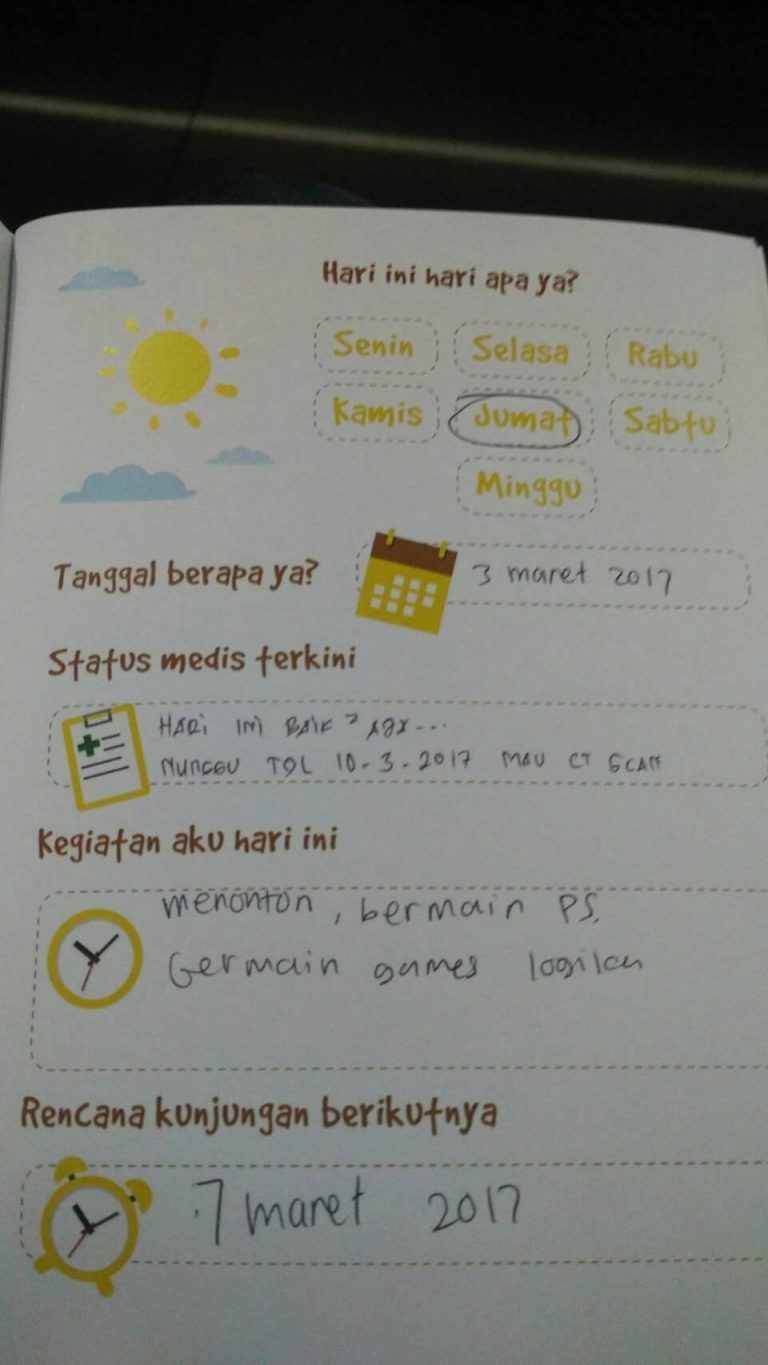 Hari ini hari apa ya?
Senin Selasa Rabu
Kamis Jumat Sabtu
Minggu
Tanggal berapa ya? 3 maret 2017
Status medis terkini
HARI INI BAIK²
NUNGGU TGL 10-3-2017 MAU CT SCAN
Kegiatan aku hari ini
menonton, bermain PS,
bermain games logika
Rencana kunjungan berikutnya
7 maret 2017